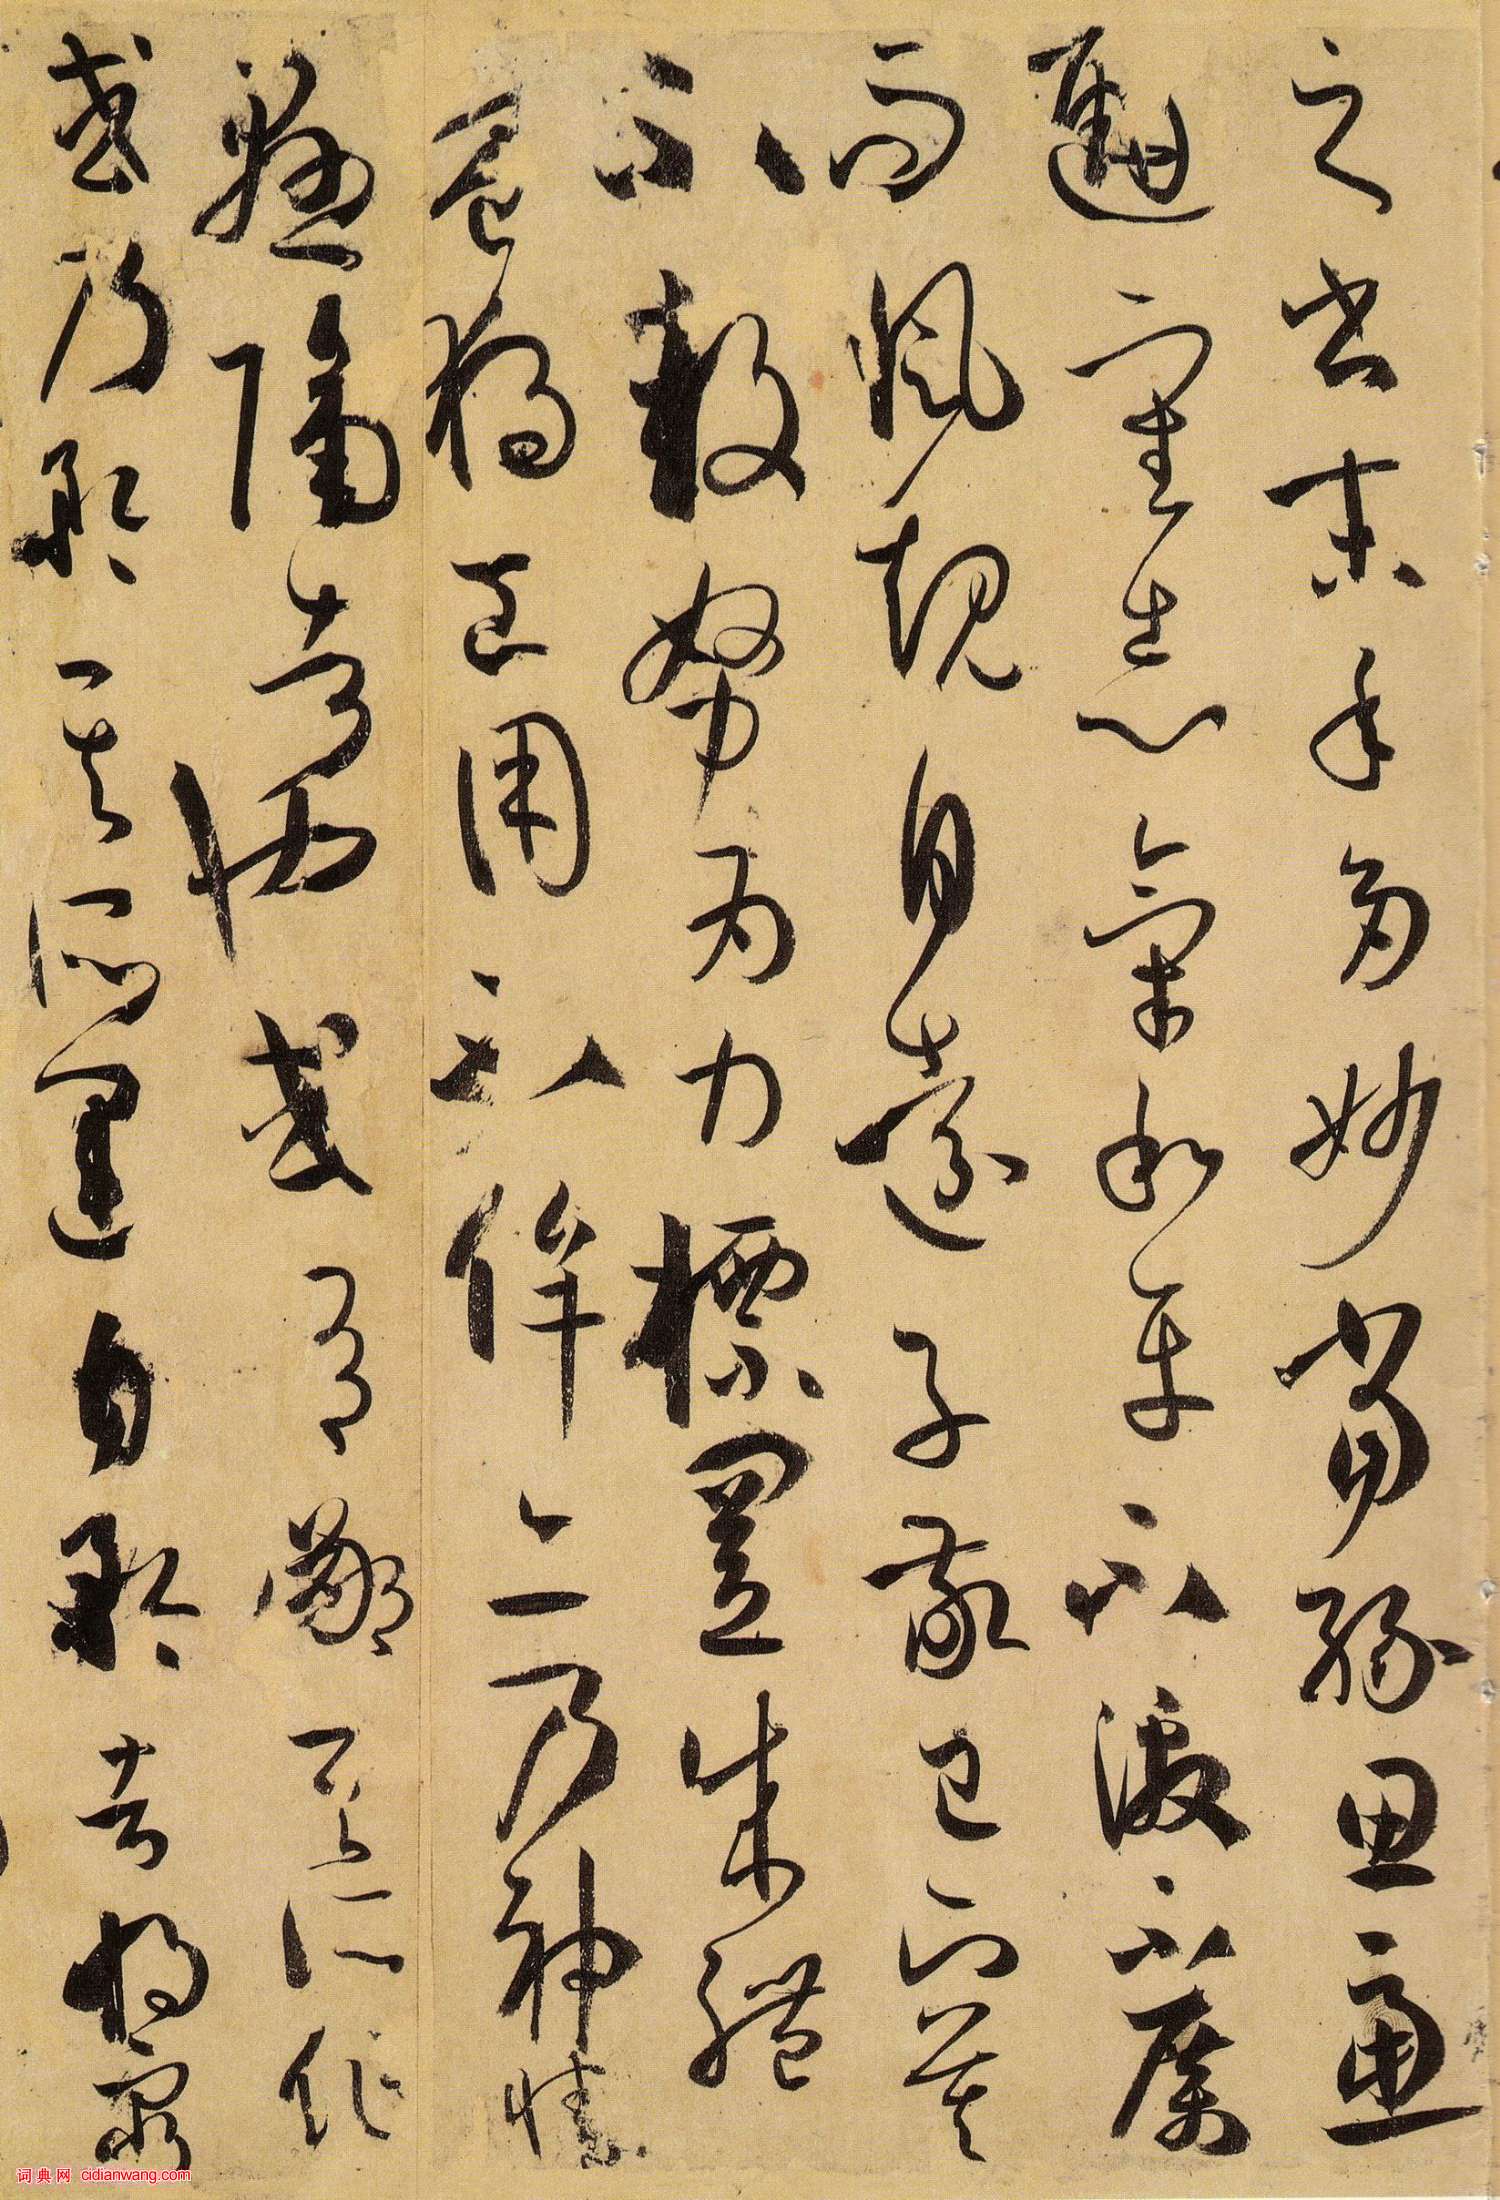 之書末年多妙當緣思慮
通審志氣和平不激不厲
而風規自遠子敬已下莫
不鼓努為力標置成體
豈獨工用不侔亦乃神情
懸隔者也或有鄙其所作
或乃矜其所運自矜者將窮
词典网 cidianwang.com